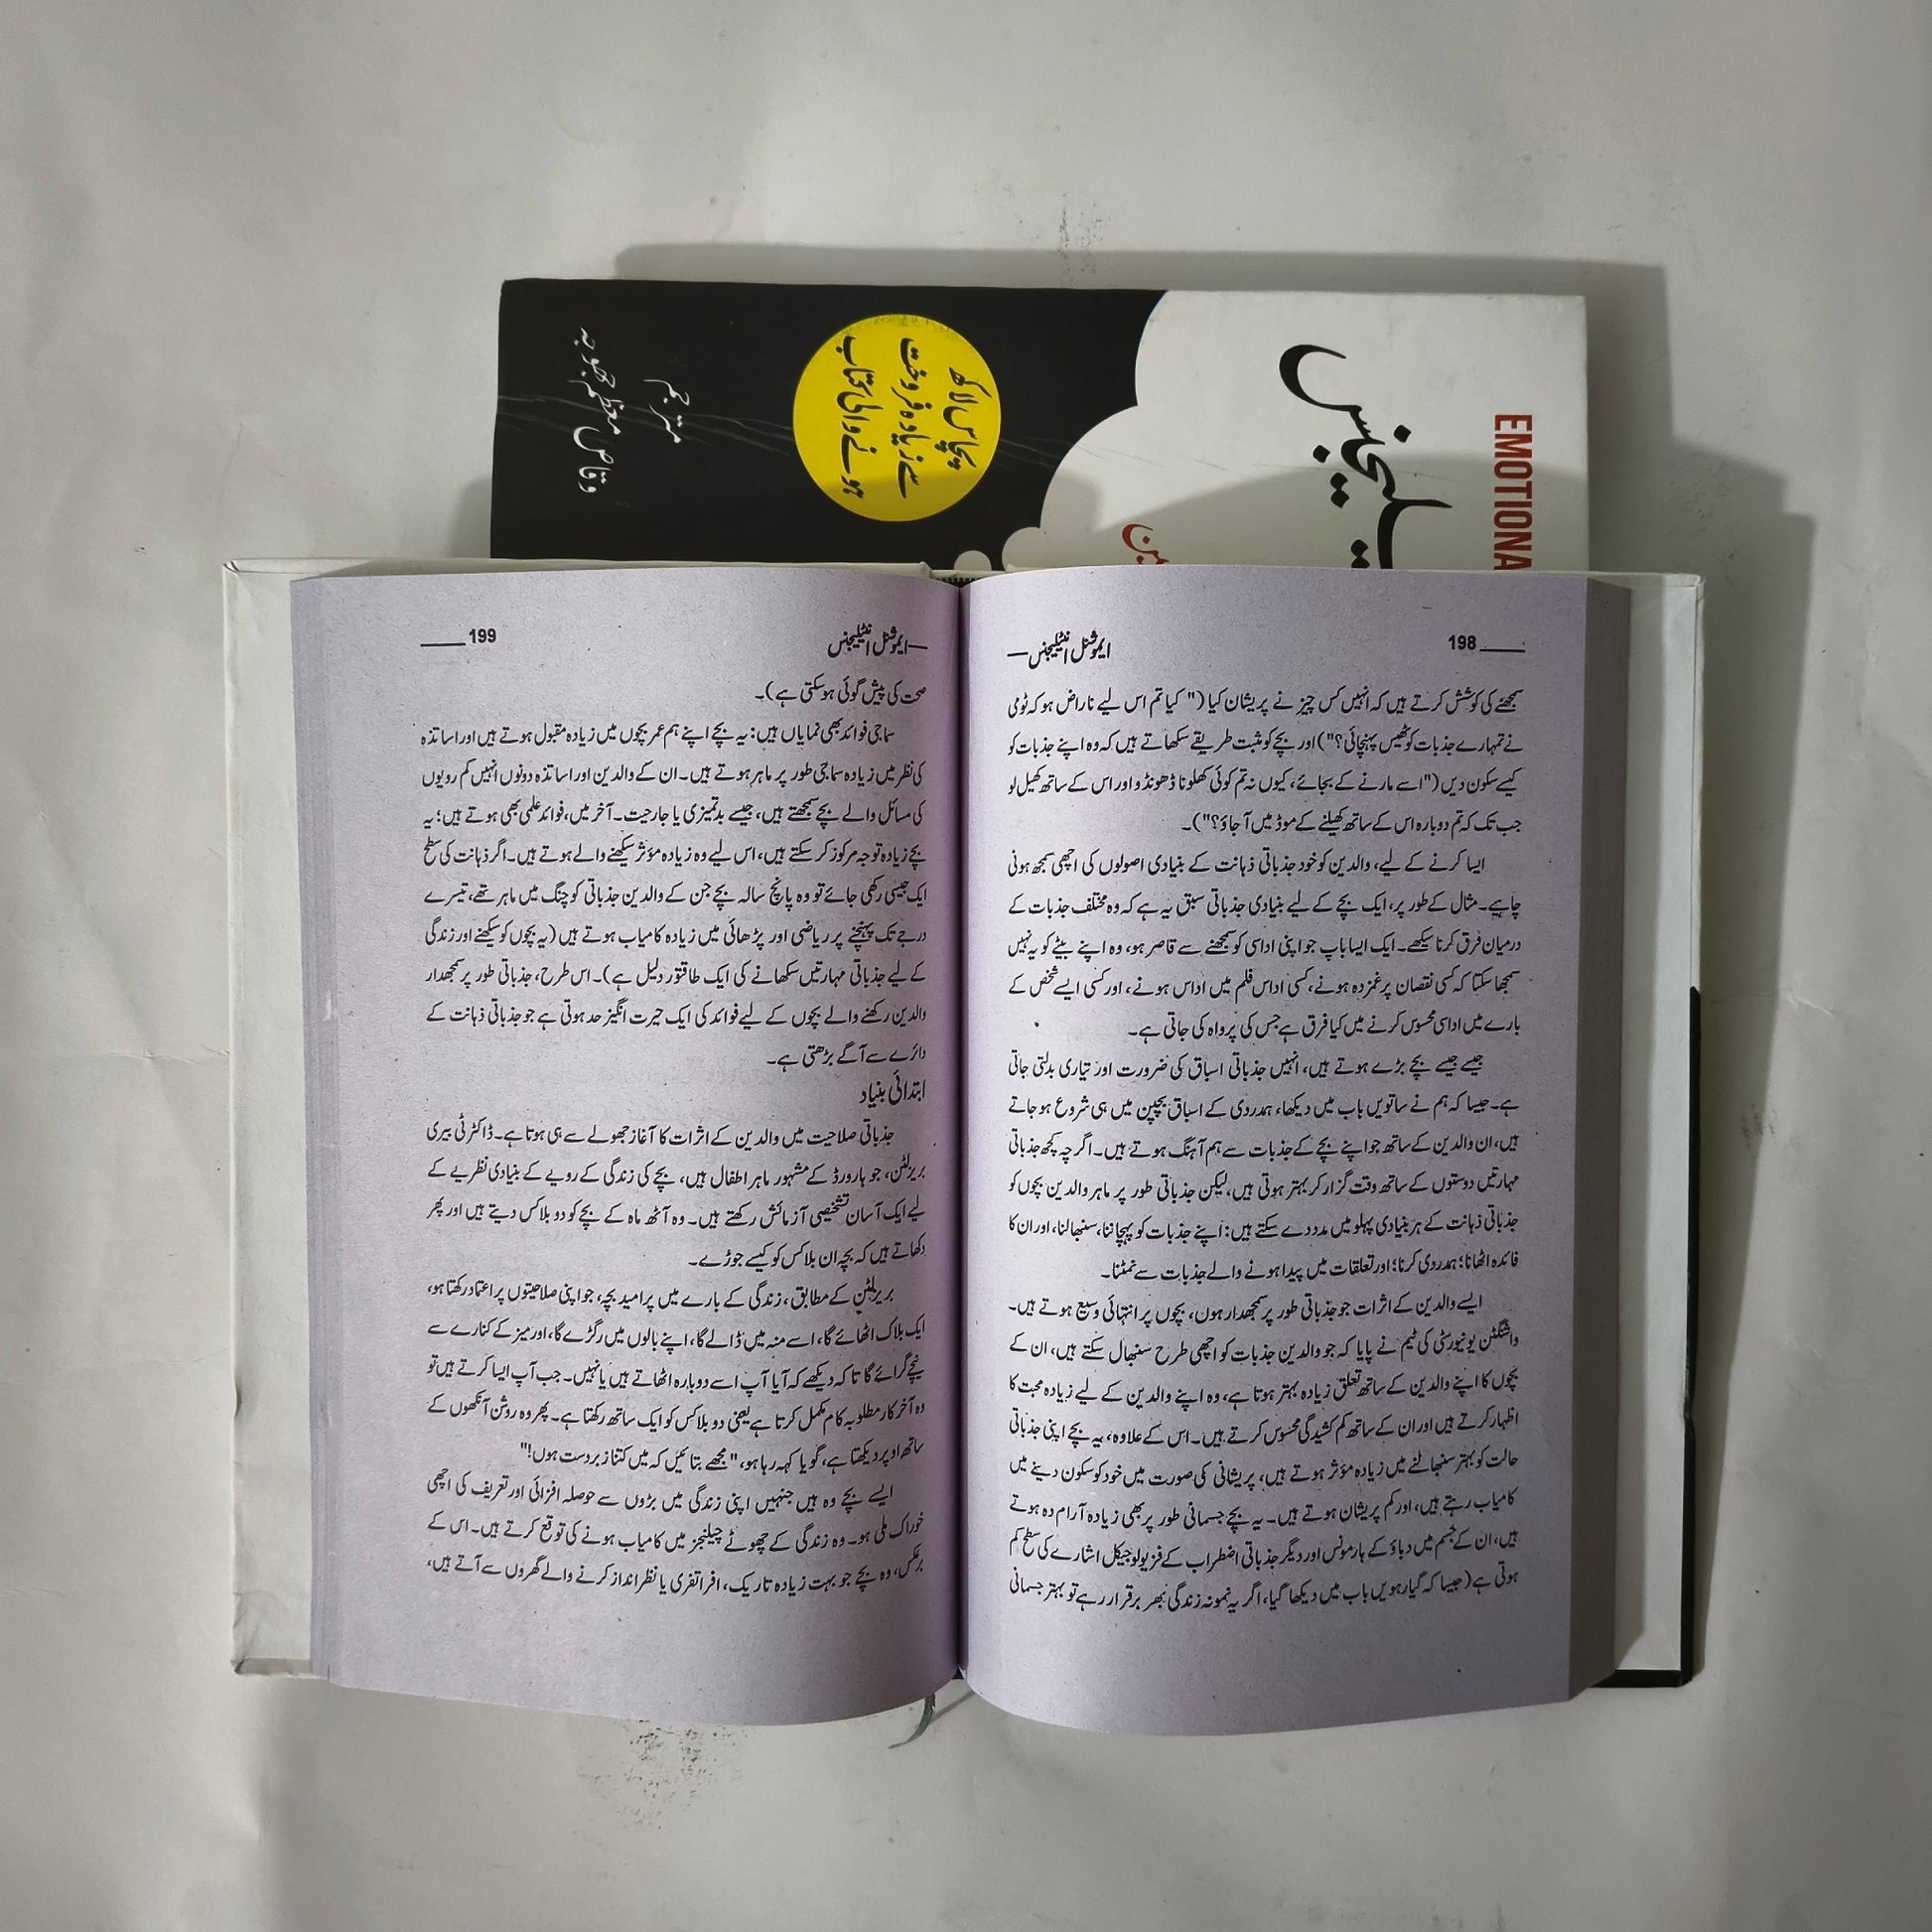 EMOTIONA
پچاس لاکھ
سے زیادہ فروخت
ہونے والی کتاب
مترجم
وقاص معظم بھوجہ
198
ایموشنل انٹیلیجنس
سمجھنے کی کوشش کرتے ہیں کہ انہیں کس چیز نے پریشان کیا (" کیا تم اس لیے ناراض ہو کہ ٹومی
نے تمہارے جذبات کو ٹھیس پہنچائی؟") اور بچے کو مثبت طریقے سکھاتے ہیں کہ وہ اپنے جذبات کو
کیسے سکون دیں ("اسے مارنے کے بجائے، کیوں نہ تم کوئی کھلونا ڈھونڈو اور اس کے ساتھ کھیل لو
جب تک کہ تم دوبارہ اس کے ساتھ کھیلنے کے موڈ میں آ جاؤ؟")۔
ایسا کرنے کے لیے، والدین کو خود جذباتی ذہانت کے بنیادی اصولوں کی اچھی سمجھ ہونی
چاہیے۔ مثال کے طور پر، ایک بچے کے لیے بنیادی جذباتی سبق یہ ہے کہ وہ مختلف جذبات کے
درمیان فرق کرنا سیکھے۔ ایک ایسا باپ جو اپنی اداسی کو سمجھنے سے قاصر ہو، وہ اپنے بیٹے کو یہ نہیں
سمجھا سکتا کہ کسی نقصان پر غمزدہ ہونے، کسی اداس فلم میں اداس ہونے، اور کسی ایسے شخص کے
بارے میں اداسی محسوس کرنے میں کیا فرق ہے جس کی پرواہ کی جاتی ہے۔
جیسے جیسے بچے بڑے ہوتے ہیں، انہیں جذباتی اسباق کی ضرورت اور تیاری بدلتی جاتی
ہے۔ جیسا کہ ہم نے ساتویں باب میں دیکھا، ہمدردی کے اسباق بچپن میں ہی شروع ہو جاتے
ہیں، ان والدین کے ساتھ جو اپنے بچے کے جذبات سے ہم آہنگ ہوتے ہیں۔ اگرچہ کچھ جذباتی
مہارتیں دوستوں کے ساتھ وقت گزار کر بہتر ہوتی ہیں، لیکن جذباتی طور پر ماہر والدین بچوں کو
جذباتی ذہانت کے ہر بنیادی پہلو میں مدد دے سکتے ہیں: اپنے جذبات کو پہچاننا، سنبھالنا، اور ان کا
فائدہ اٹھانا؛ ہمدردی کرنا؛ اور تعلقات میں پیدا ہونے والے جذبات سے نمٹنا۔
ایسے والدین کے اثرات جو جذباتی طور پر سمجھدار ہون، بچوں پر انتہائی وسیع ہوتے ہیں۔
واشنگٹن یونیورسٹی کی ٹیم نے پایا کہ جو والدین جذبات کو اچھی طرح سنبھال سکتے ہیں، ان کے
بچوں کا اپنے والدین کے ساتھ تعلق زیادہ بہتر ہوتا ہے، وہ اپنے والدین کے لیے زیادہ محبت کا
اظہار کرتے ہیں اور ان کے ساتھ کم کشیدگی محسوس کرتے ہیں۔ اس کے علاوہ، یہ بچے اپنی جذباتی
حالت کو بہتر سنبھالنے میں زیادہ مؤثر ہوتے ہیں، پریشانی کی صورت میں خود کو سکون دینے میں
کامیاب رہتے ہیں، اور کم پریشان ہوتے ہیں۔ یہ بچے جسمانی طور پر بھی زیادہ آرام دہ ہوتے
ہیں، ان کے جسم میں دباؤ کے ہارمونس اور دیگر جذباتی اضطراب کے فزیولوجیکل اشارے کی سطح کم
ہوتی ہے (جیسا کہ گیارہویں باب میں دیکھا گیا، اگر یہ نمونہ زندگی بھر برقرار رہے تو بہتر جسمانی
199
ایموشنل انٹیلیجنس
صحت کی پیش گوئی ہو سکتی ہے)۔
سماجی فوائد بھی نمایاں ہیں: یہ بچے اپنے ہم عمر بچوں میں زیادہ مقبول ہوتے ہیں اور اساتذہ
کی نظر میں زیادہ سماجی طور پر ماہر ہوتے ہیں۔ ان کے والدین اور اساتذہ دونوں انہیں کم رویوں
کی مسائل والے بچے سمجھتے ہیں، جیسے بدتمیزی یا جارحیت۔ آخر میں، فوائد علمی بھی ہوتے ہیں؛ یہ
بچے زیادہ توجہ مرکوز کر سکتے ہیں، اس لیے وہ زیادہ مؤثر سیکھنے والے ہوتے ہیں۔ اگر ذہانت کی سطح
ایک جیسی رکھی جائے تو وہ پانچ سالہ بچے جن کے والدین جذباتی کوچنگ میں ماہر تھے، تیسرے
درجے تک پہنچنے پر ریاضی اور پڑھائی میں زیادہ کامیاب ہوتے ہیں (یہ بچوں کو سیکھنے اور زندگی
کے لیے جذباتی مہارتیں سکھانے کی ایک طاقتور دلیل ہے)۔ اس طرح، جذباتی طور پر سمجھدار
والدین رکھنے والے بچوں کے لیے فوائد کی ایک حیرت انگیز حد ہوتی ہے جو جذباتی ذہانت کے
دائرے سے آگے بڑھتی ہے۔
ابتدائی بنیاد
جذباتی صلاحیت میں والدین کے اثرات کا آغاز جھولے سے ہی ہوتا ہے۔ ڈاکٹر ٹی بیری
بریزلٹن، جو ہارورڈ کے مشہور ماہر اطفال ہیں، بچے کی زندگی کے رویے کے بنیادی نظریے کے
لیے ایک آسان تشخیصی آزمائش رکھتے ہیں۔ وہ آٹھ ماہ کے بچے کو دو بلاکس دیتے ہیں اور پھر
دکھاتے ہیں کہ بچہ ان بلاکس کو کیسے جوڑے۔
بریزلٹن کے مطابق، زندگی کے بارے میں پرامید بچہ، جو اپنی صلاحیتوں پر اعتماد رکھتا ہو،
ایک بلاک اٹھائے گا، اسے منہ میں ڈالے گا، اپنے بالوں میں رگڑے گا، اور میز کے کنارے سے
نیچے گرائے گا تا کہ دیکھے کہ آیا آپ اسے دوبارہ اٹھاتے ہیں یا نہیں۔ جب آپ ایسا کرتے ہیں تو
وہ آخر کار مطلوبہ کام مکمل کرتا ہے یعنی دو بلاکس کو ایک ساتھ رکھتا ہے۔ پھر وہ روشن آنکھوں کے
ساتھ اوپر دیکھتا ہے، گویا کہہ رہا ہو، "مجھے بتائیں کہ میں کتنا زبردست ہوں!"
ایسے بچے وہ ہیں جنہیں اپنی زندگی میں بڑوں سے حوصلہ افزائی اور تعریف کی اچھی
خوراک ملی ہو۔ وہ زندگی کے چھوٹے چیلنجز میں کامیاب ہونے کی توقع کرتے ہیں۔ اس کے
برعکس، وہ بچے جو بہت زیادہ تاریک، افراتفری یا نظر انداز کرنے والے گھروں سے آتے ہیں،